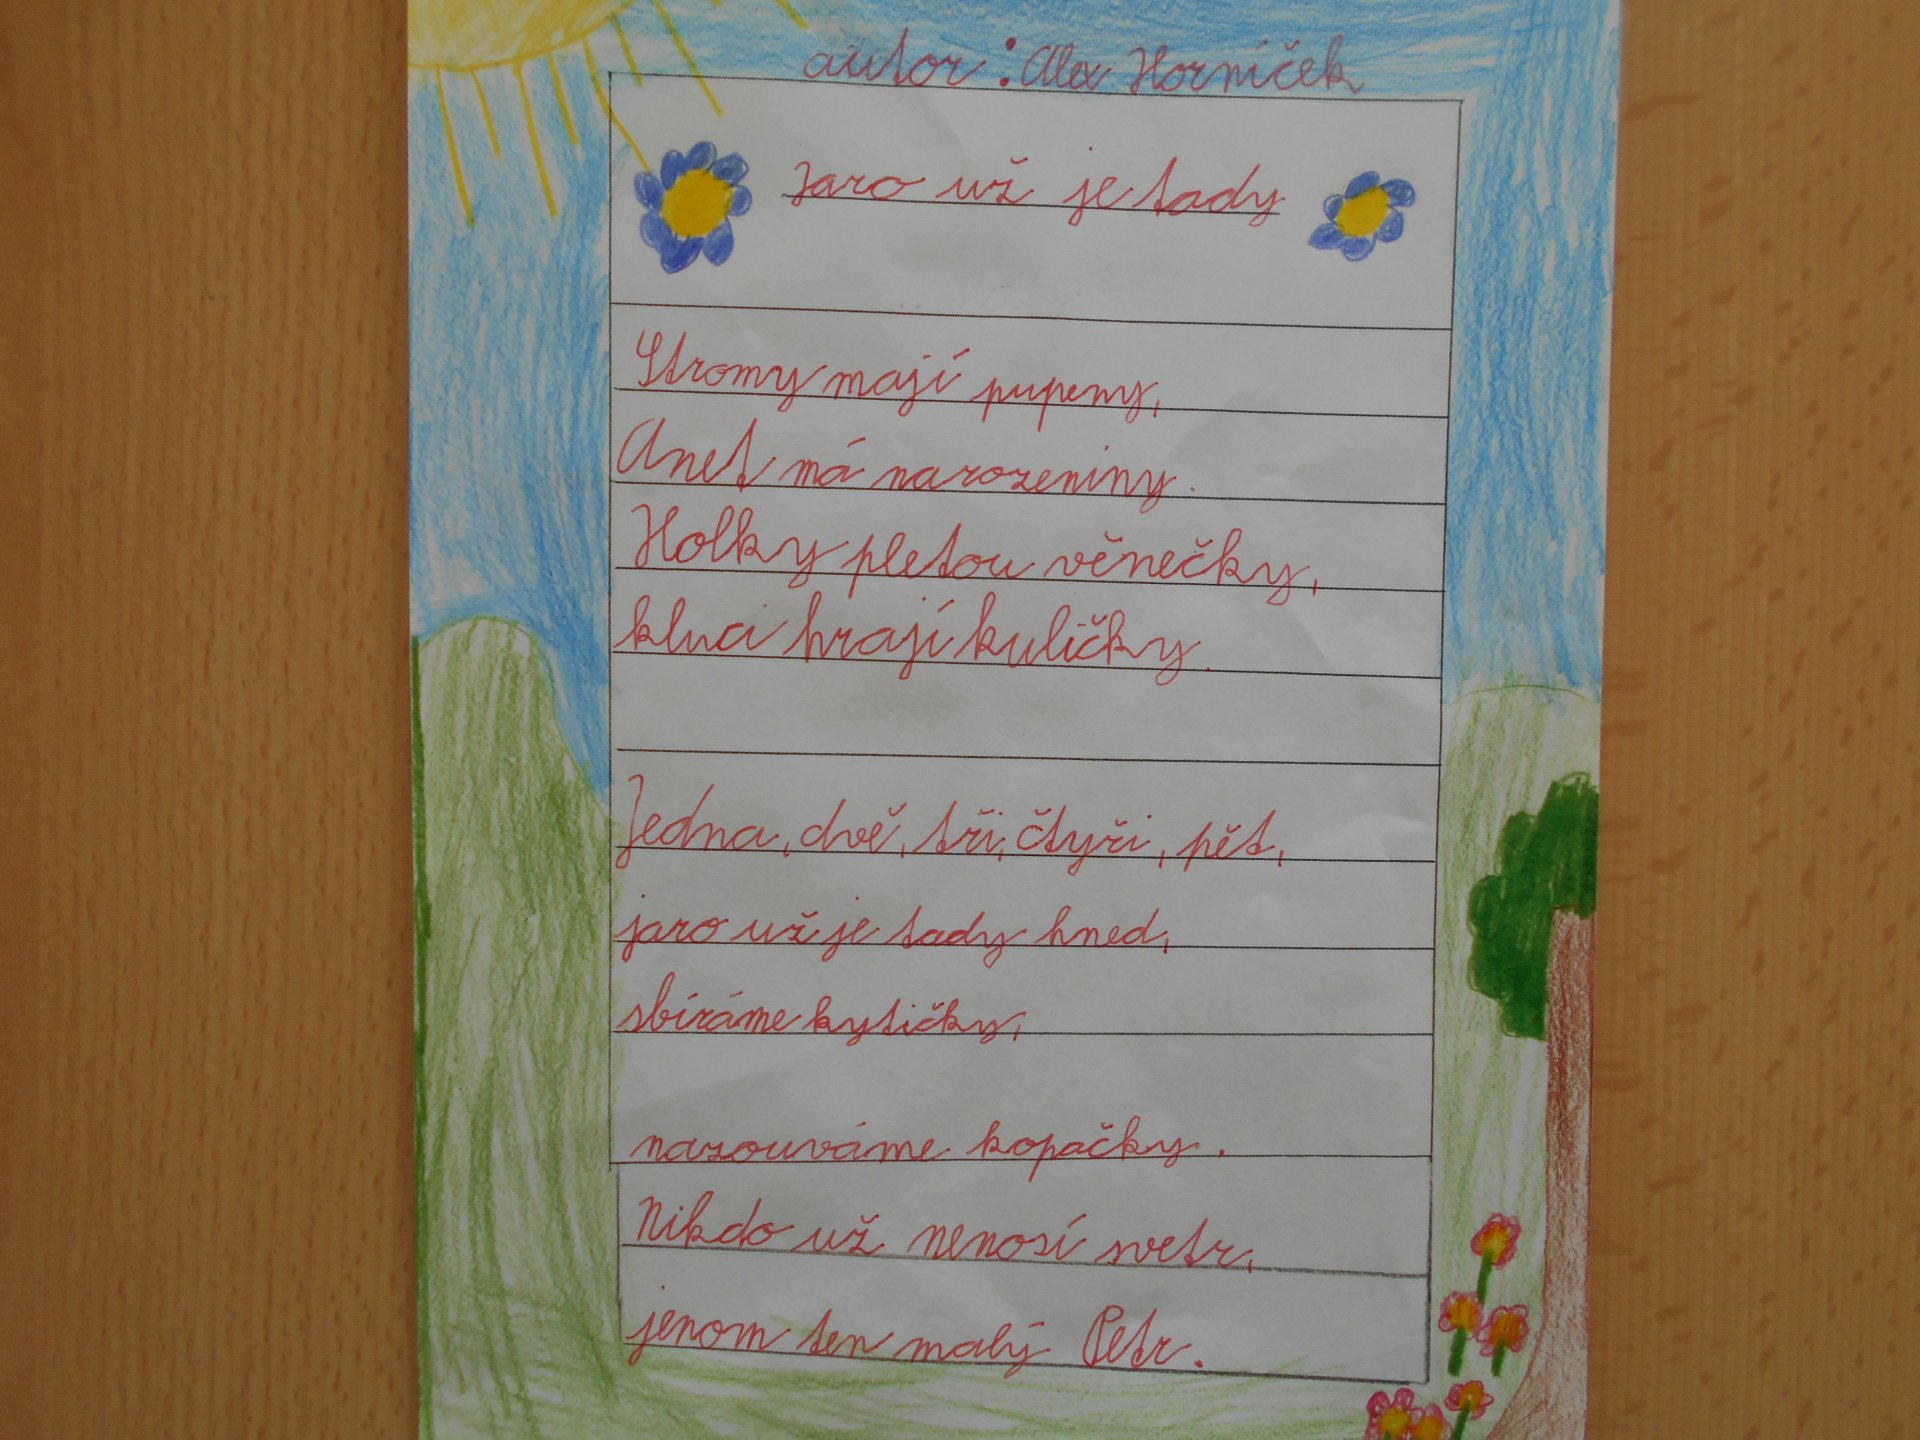 autor: Alex Horníček
Jaro už je tady
Stromy mají pupeny,
Anet má narozeniny.
Holky pletou věnečky,
kluci hrají kuličky.
Jedna, dvě, tři, čtyři, pět,
jaro už je tady hned,
sbíráme kytičky,
nazouváme kopačky.
Nikdo už nenosí svetr,
jenom ten malý Petr.